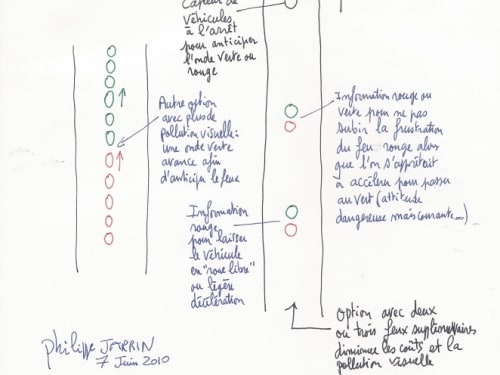 Capteur de
véhicules,
à l'arrêt
pour anticiper
l'onde verte ou
rouge
Autre option
avec plus de
pollution visuelle :
une onde verte
avance afin
d'anticiper le feux
Information rouge ou
verte pour ne pas
subir la frustration
du feu rouge alors
que l'on s'apprêtait
à accélérer pour passer
au vert (attitude
dangereuse mais courante...)
Information
rouge
pour laisser
le véhicule
en "roue libre"
ou légère
décélération
Option avec deux
ou trois feux supplémentaires
diminue les coûts et la
pollution visuelle
philippe JARRIN
7 Juin 2010